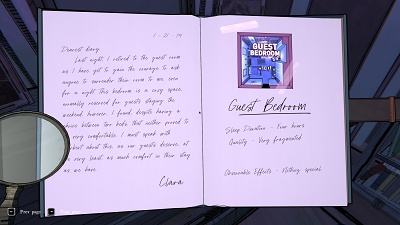 1 - 21 - 14
Dearest diary,
Last night I retired to the guest room
as I have yet to gain the courage to ask
anyone to surrender their room to me, even
for a night. This bedroom is a cozy space,
normally reserved for guests staying the
weekend, however, I found, despite having a
choice between two beds, that neither proved to
very comfortable. I must speak with
about this, as our guests deserve, at
very least, as much comfort in their stay
as we have.
Clara
GUEST
BEDROOM
Guest Bedroom
Sleep Duration - Four hours
Quality - Very fragmented
Observable Effects - Nothing special
Prev page